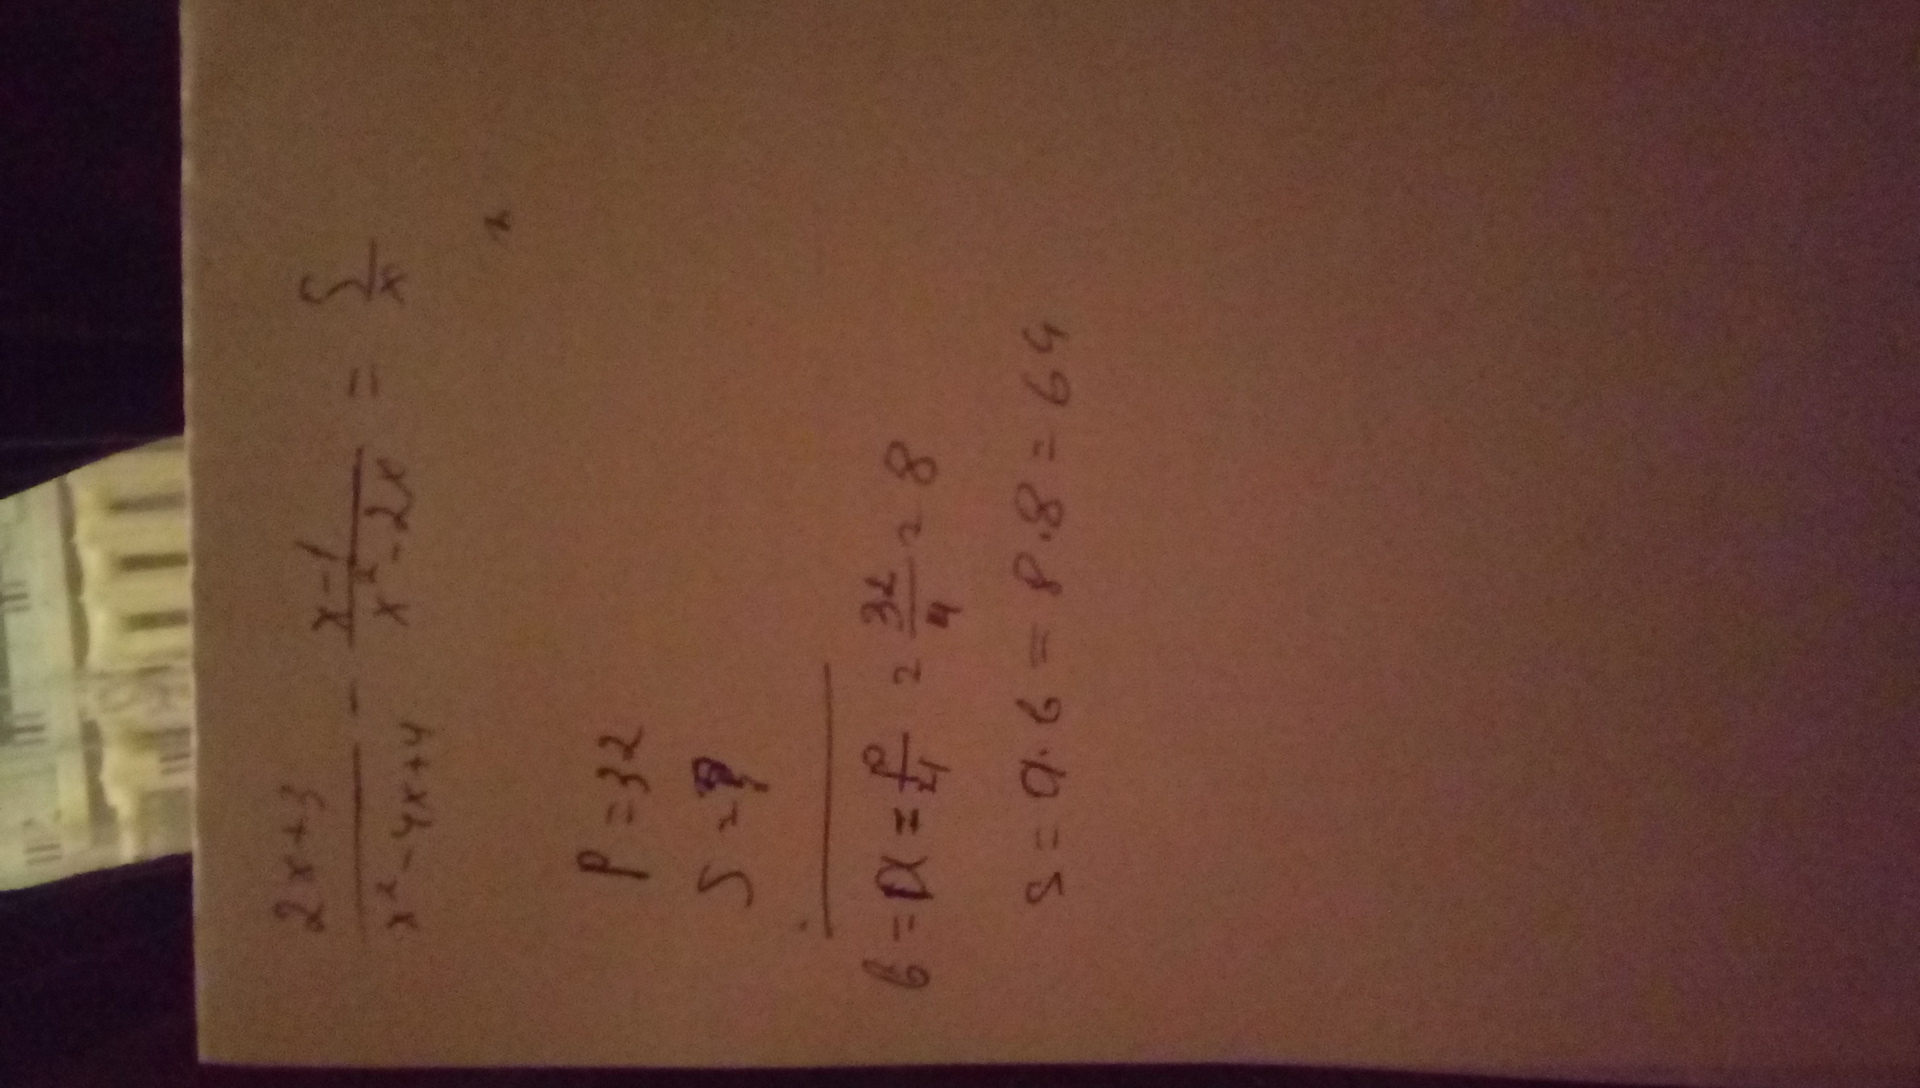 2x+3/x²-4x+4 - x-1/x²-2x = 5/x
P=32
S=?
b=a=P/4=32/4=8
S=a·b=8·8=64